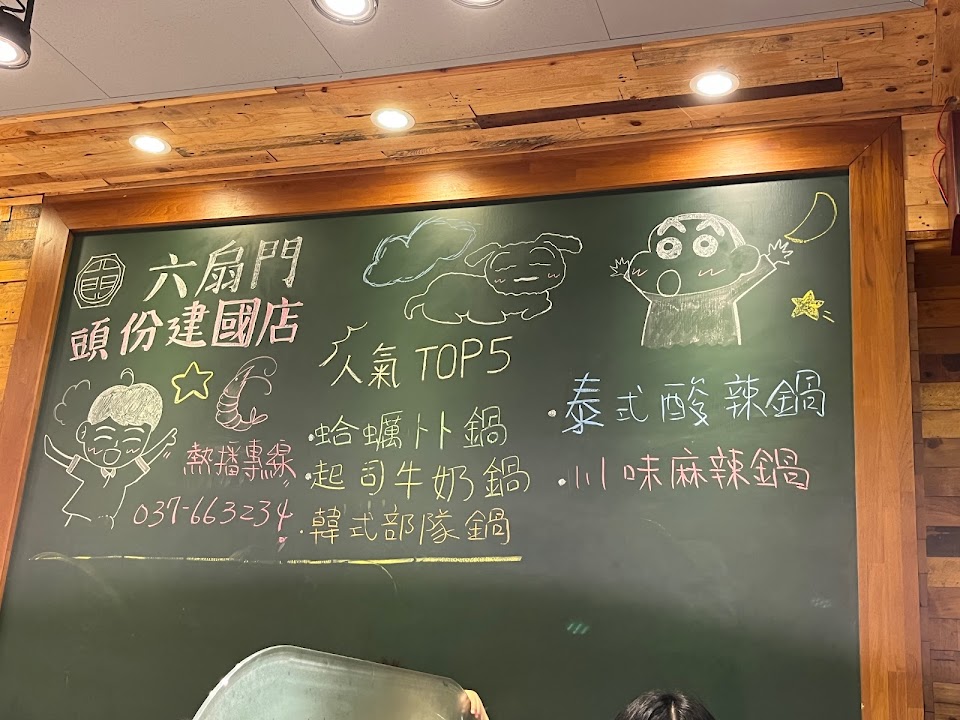 六扇門
頭份建國店
熱播專線
037-663234
人氣 TOP5
·蛤蠣卜卜鍋
·起司牛奶鍋
·韓式部隊鍋
·泰式酸辣鍋
·川味麻辣鍋